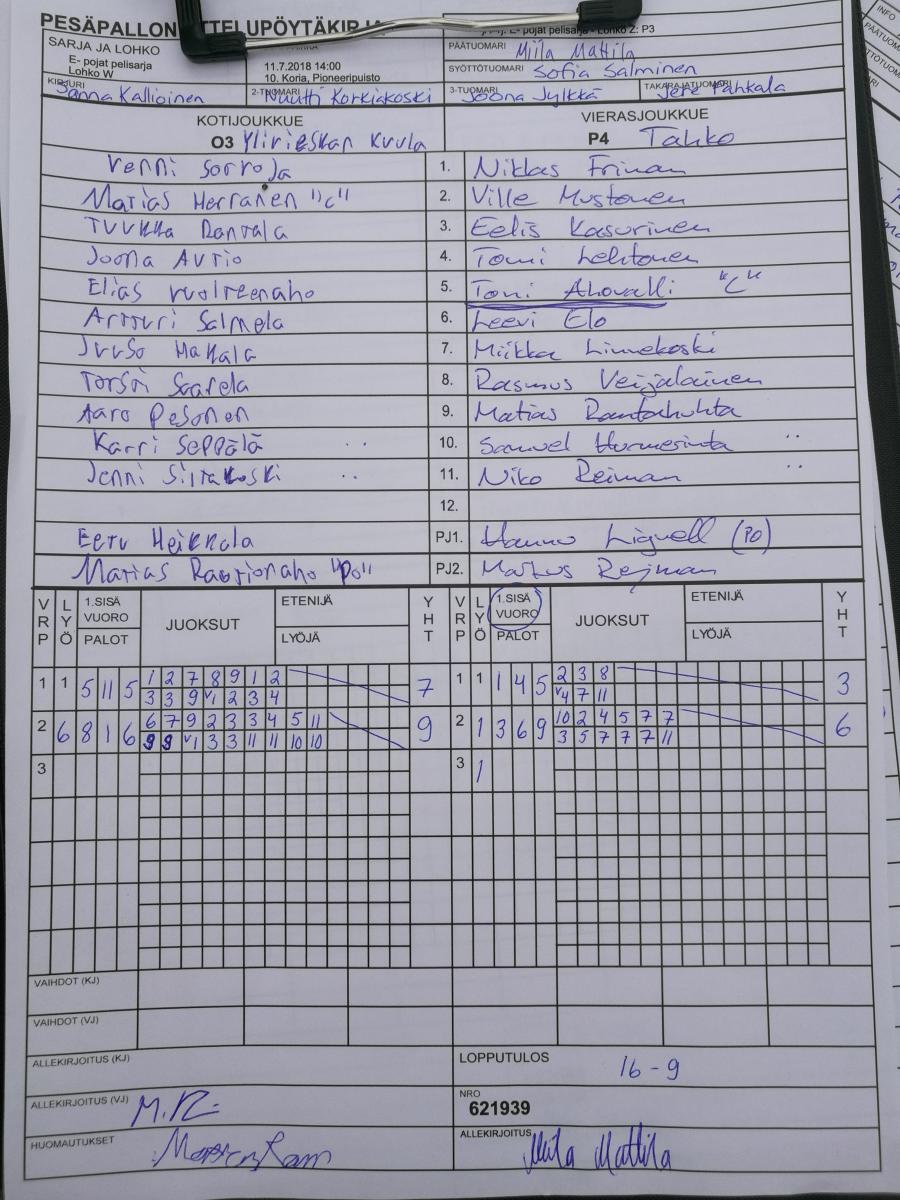 PESÄPALLON OTTELUPÖYTÄKIRJA
SARJA JA LOHKO
E- pojat pelisarja
Lohko W
11.7.2018 14:00
10. Koria, Pioneeripuisto
E- pojat pelisarja - Lohko Z: P3
PÄÄTUOMARI Miila Mattila
SYÖTTÖTUOMARI Sofia Salminen
KIRJURI Sanna Kallioinen
2-TUOMARI Nuutti Korkiakoski
3-TUOMARI Joona Jylkkä
TAKARAJATUOMARI Jere Pahkala
KOTIJOUKKUE
O3 Ylivieskan Kuula
VIERASJOUKKUE
P4 Tahko
Venni Sorroja 1. Niklas Friman
Matias Herranen "c" 2. Ville Mustonen
Tuukka Rantala 3. Eelis Kasurinen
Joona Autio 4. Tomi Lehtonen
Elias Vuolteenaho 5. Toni Ahovalli "C"
Artturi Salmela 6. Leevi Elo
Juuso Hakala 7. Miikka Linnekoski
Torsti Saarela 8. Rasmus Veijalainen
Aaro Pesonen 9. Matias Rantahuhta
Karri Seppälä 10. Samuel Hurmerinta
Jenni Siirakoski 11. Niko Reiman
12.
Eetu Heikkola PJ1. Hannu Lignell (PO)
Matias Rautionaho "Po" PJ2. Markus Reiman
VRP LYÖ 1.SISÄ VUORO PALOT JUOKSUT ETENIJÄ LYÖJÄ YHT
VRP LYÖ 1.SISÄ VUORO PALOT JUOKSUT ETENIJÄ LYÖJÄ YHT
1 1 5 11 5 1 2 7 8 9 1 2 7
3 3 9 v1 2 3 4
1 1 1 4 5 2 3 8 3
v4 7 11
2 6 8 1 6 6 7 9 2 3 3 4 5 11 9
9 9 v1 3 3 11 11 10 10
2 1 3 6 9 10 2 4 5 7 7 6
3 5 7 7 7 11
3
3 1
VAIHDOT (KJ)
VAIHDOT (VJ)
ALLEKIRJOITUS (KJ)
LOPPUTULOS 16 - 9
ALLEKIRJOITUS (VJ)
NRO
621939
HUOMAUTUKSET
ALLEKIRJOITUS Miila Mattila